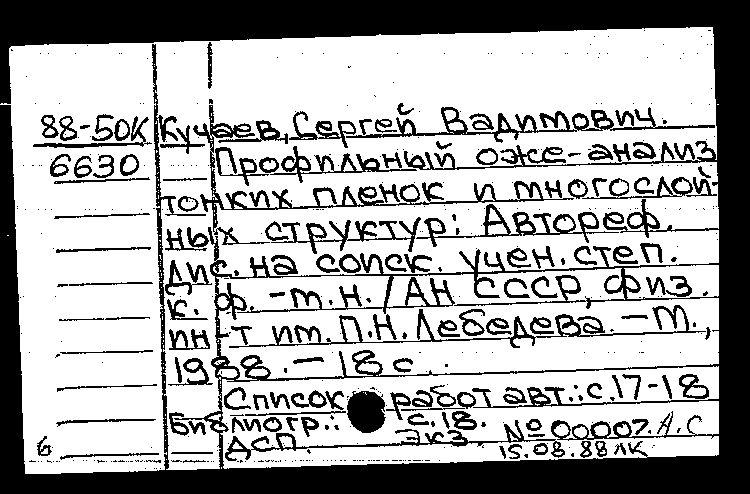 88-50К Кучаев, Сергей Вадимович.
6630 Профильный оже-анализ
тонких пленок и многослой-
ных структур: Автореф.
дис. на соиск. учен. степ.
к. ф.-м.н. /АН СССР, Физ.
ин-т им. П.Н. Лебедева. -М.,
1988. - 18 с.
Список работ авт.: с. 17-18
Библиогр.: с. 18.
ДСП. Экз. №00007. А.С
6 15.08.88 ЛК